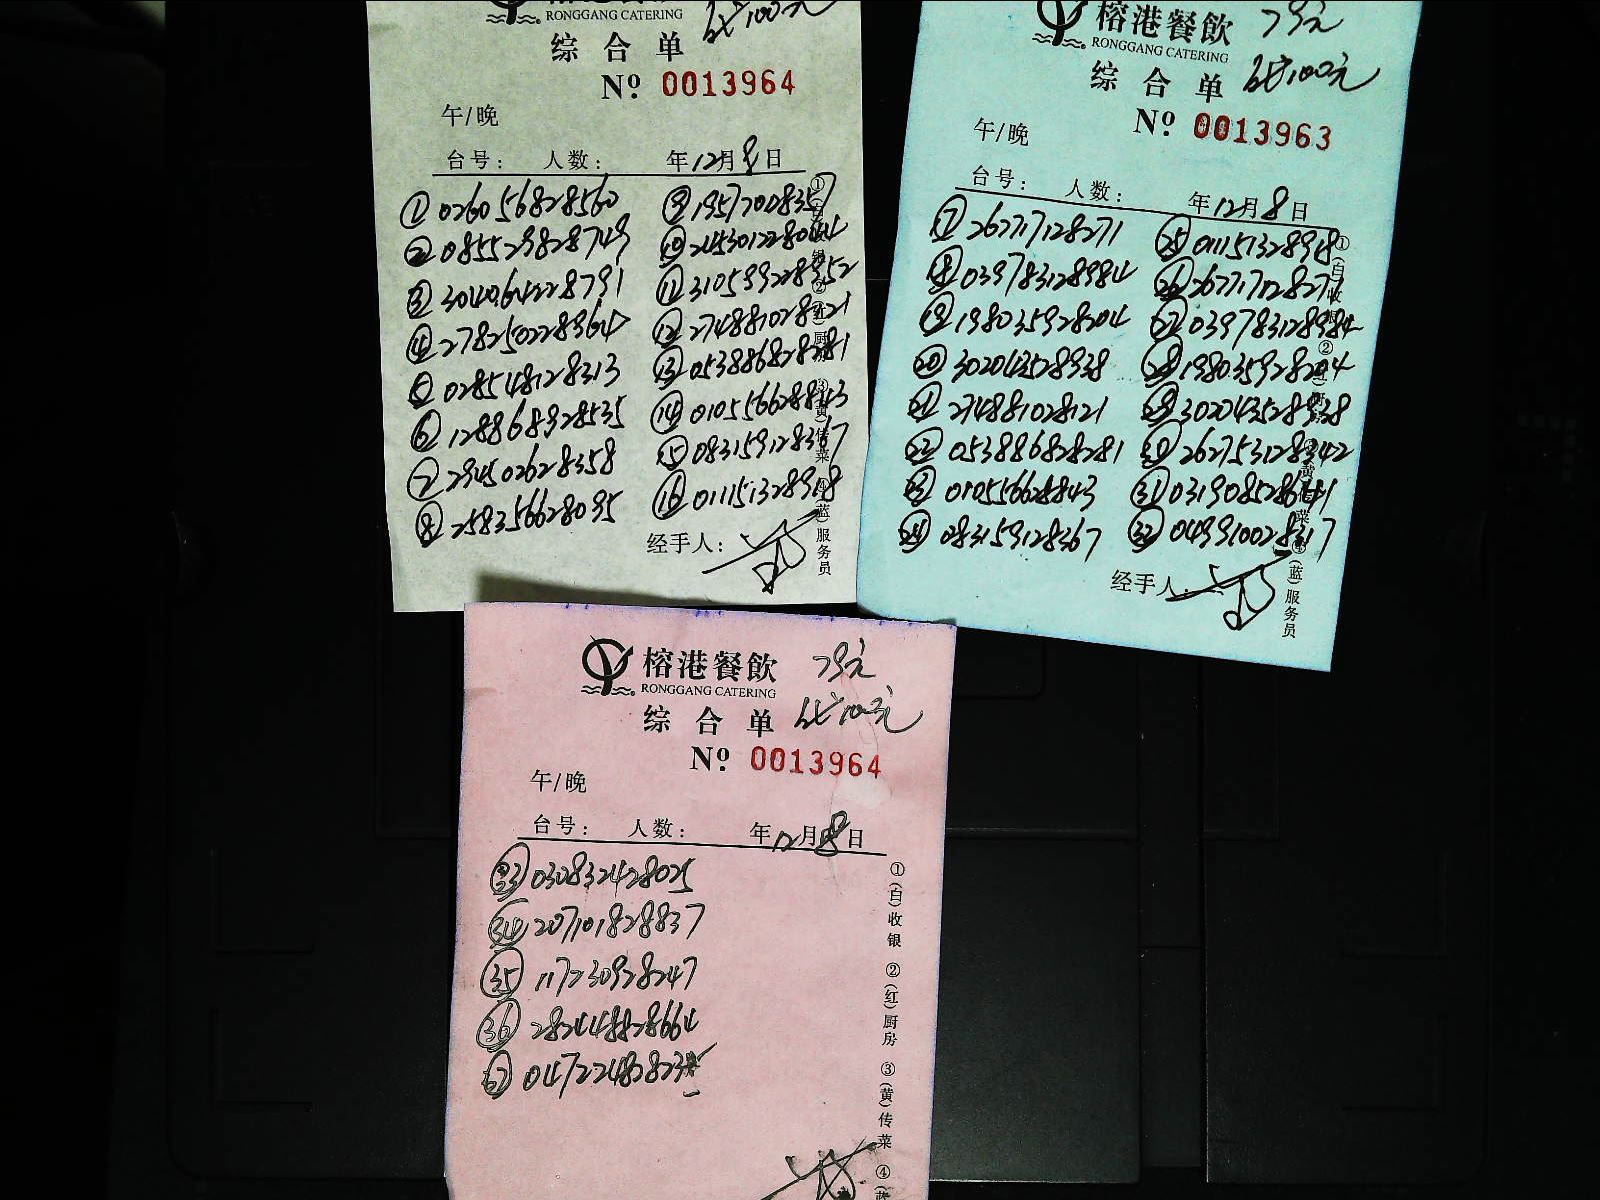 RONGGANG CATERING
综合单
Nº 0013964
午/晚
台号: 人数: 年12月8日
① 026056828560
② 085529828749
③ 304064228791
④ 278250228964
⑤ 028548128313
⑥ 128868928535
⑦ 294502628358
⑧ 258356628095
⑨ 195770028357
⑩ 245301228044
⑪ 310599228952
⑫ 274881028121
⑬ 053886828281
⑭ 010556628843
⑮ 083159128367
⑯ 011151328918
经手人:
服务员
榕港餐飲 79元
RONGGANG CATERING
综合单
Nº 0013963
午/晚
台号: 人数: 年12月8日
267717128271
⑱ 039783128984
⑲ 198035928204
⑳ 302043528938
㉑ 274881028121
053886828281
010556628843
㉔ 083159128367
㉕ 011151328918
㉖ 267717128271
㉗ 039783128984
㉘ 198035928204
㉙ 302043528938
㉚ 262753128342
㉛ 031908528641
㉜ 049910028317
经手人:
(蓝)服务员
榕港餐飲 79元
RONGGANG CATERING
综合单
Nº 0013964
午/晚
台号: 人数: 年12月8日
㉝ 030832428025
㉞ 207101828837
㉟ 117230928247
㊱ 282448828664
①(白)收银 ②(红)厨房 ③(黄)传菜 ④